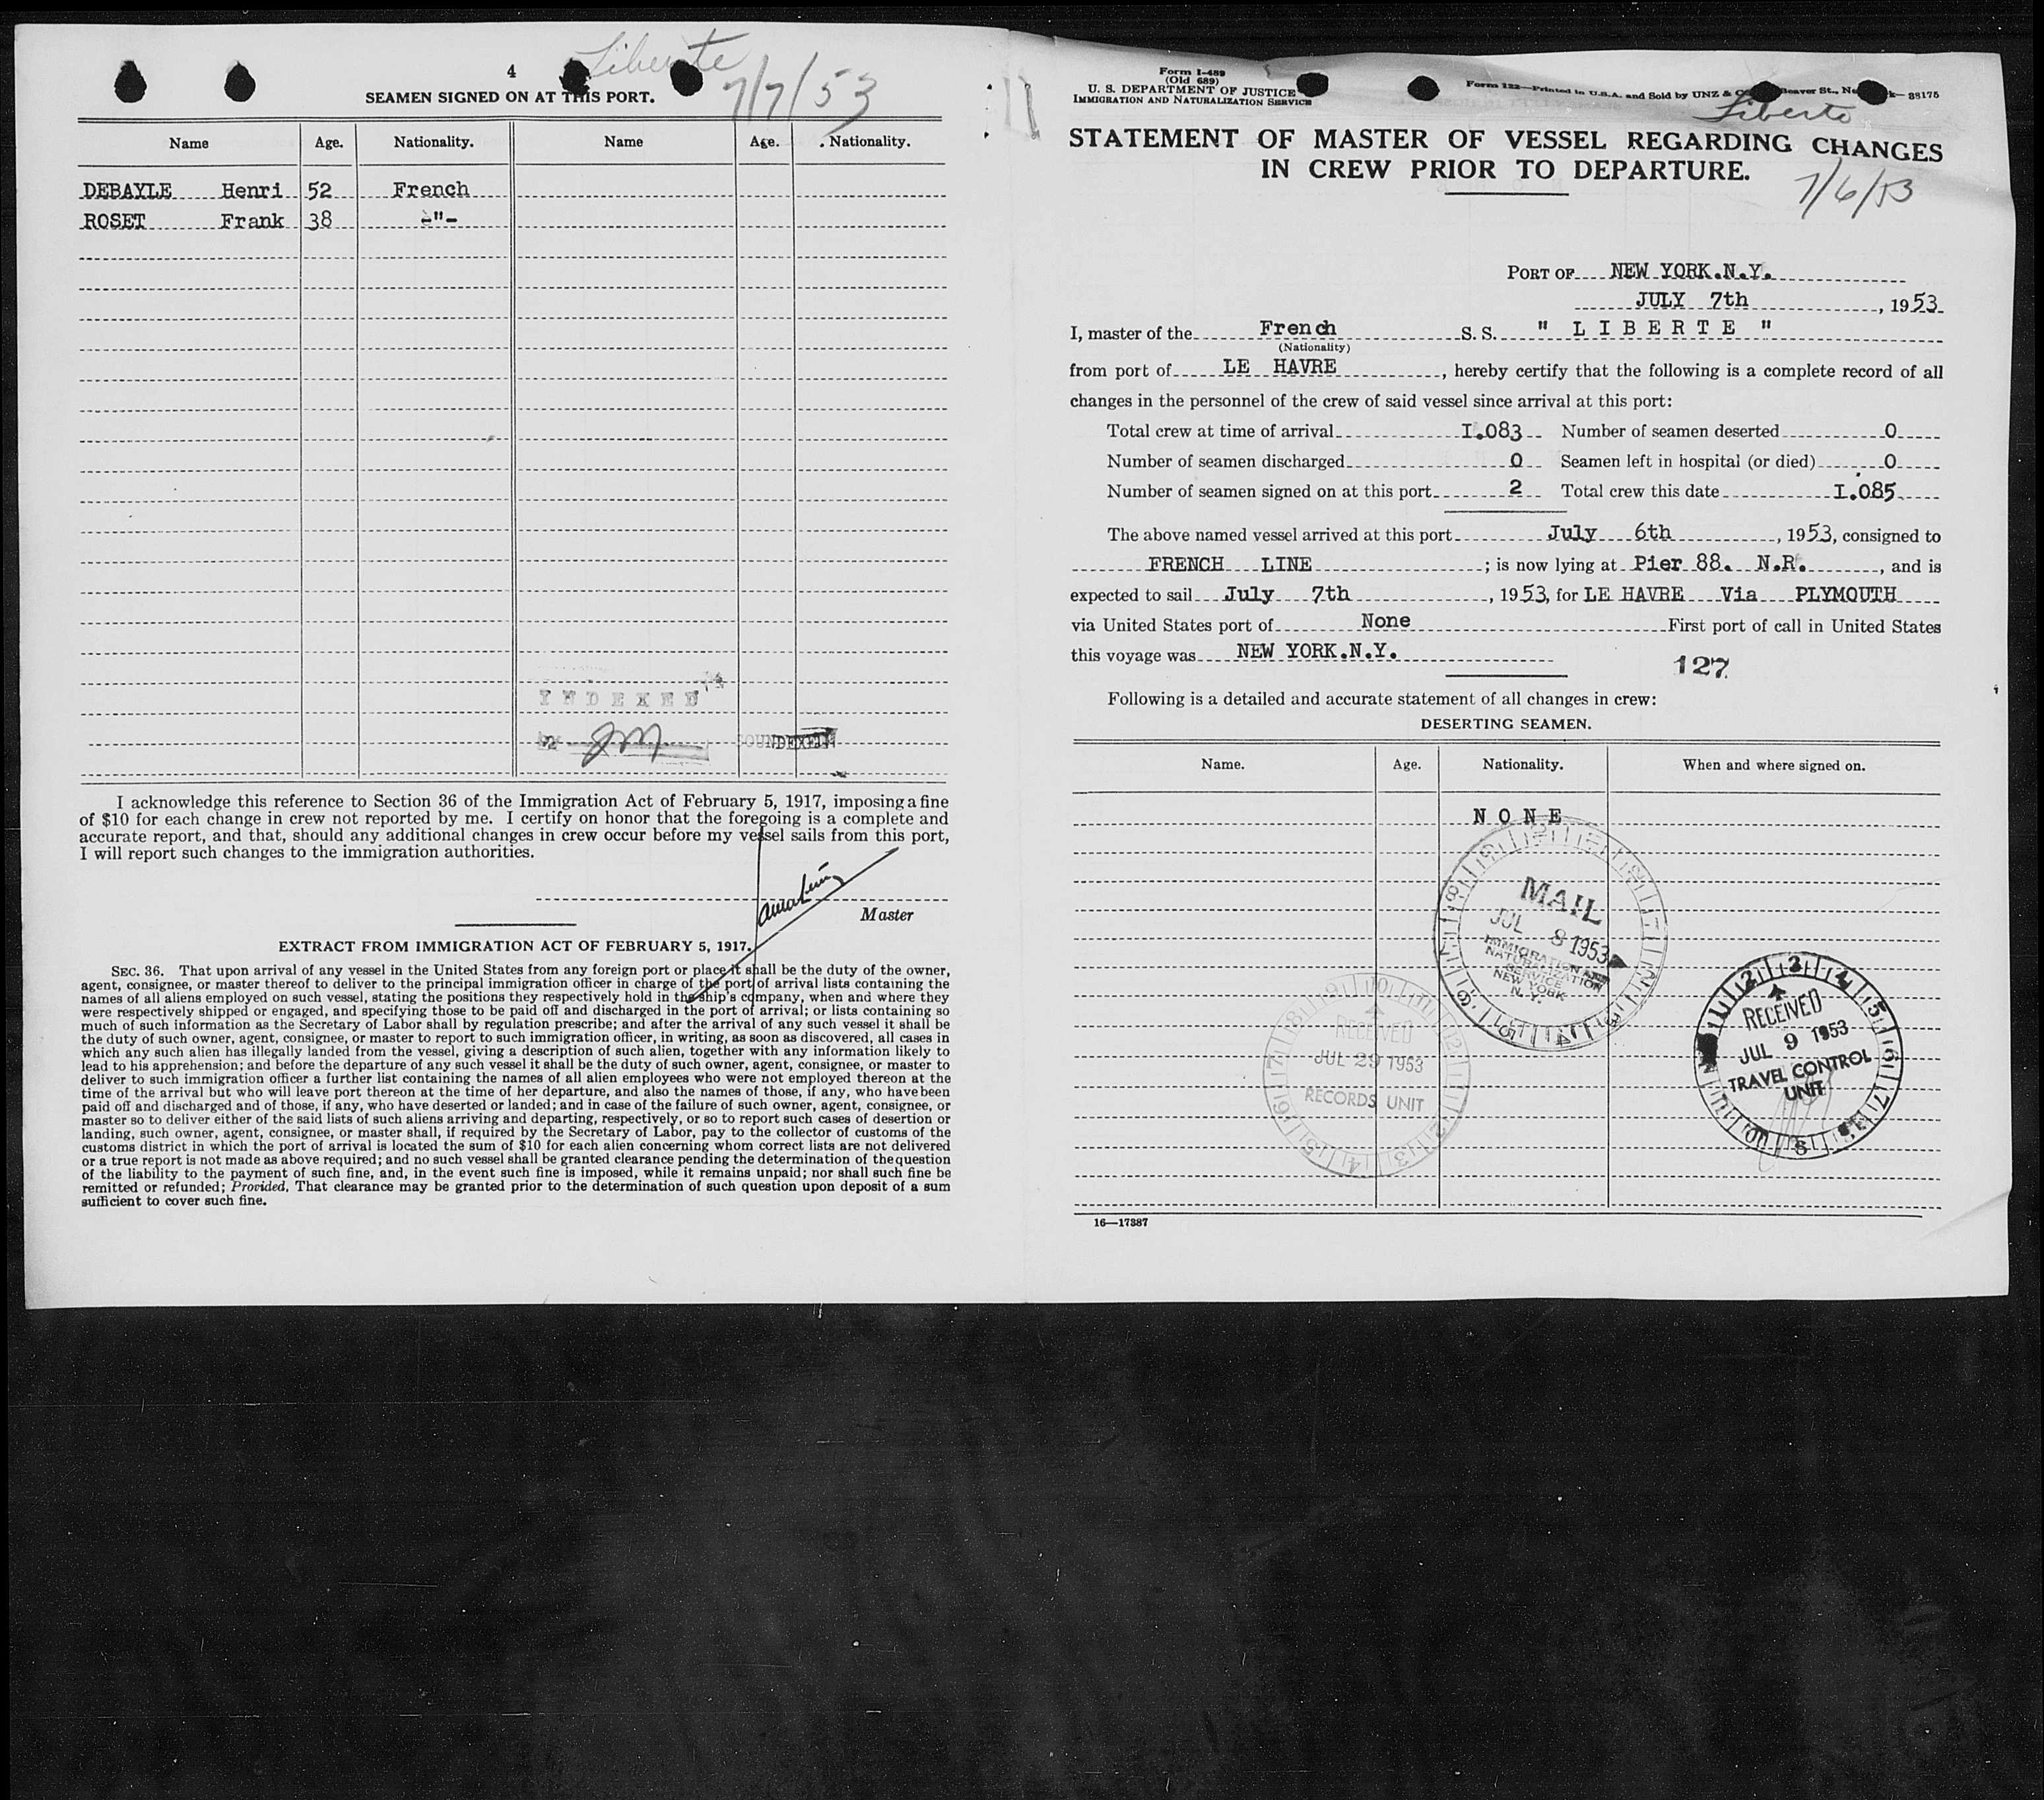 4
Liberte
7/7/53
SEAMEN SIGNED ON AT THIS PORT.
Name Age. Nationality. Name Age. Nationality.
DEBAYLE Henri 52 French
ROSET Frank 38 -"-
INDEXED
JM
SOUNDEXED
I acknowledge this reference to Section 36 of the Immigration Act of February 5, 1917, imposing a fine
of $10 for each change in crew not reported by me. I certify on honor that the foregoing is a complete and
accurate report, and that, should any additional changes in crew occur before my vessel sails from this port,
I will report such changes to the immigration authorities.
Master
EXTRACT FROM IMMIGRATION ACT OF FEBRUARY 5, 1917.
SEC. 36. That upon arrival of any vessel in the United States from any foreign port or place it shall be the duty of the owner,
agent, consignee, or master thereof to deliver to the principal immigration officer in charge of the port of arrival lists containing the
names of all aliens employed on such vessel, stating the positions they respectively hold in the ship's company, when and where they
were respectively shipped or engaged, and specifying those to be paid off and discharged in the port of arrival; or lists containing so
much of such information as the Secretary of Labor shall by regulation prescribe; and after the arrival of any such vessel it shall be
the duty of such owner, agent, consignee, or master to report to such immigration officer, in writing, as soon as discovered, all cases in
which any such alien has illegally landed from the vessel, giving a description of such alien, together with any information likely to
lead to his apprehension; and before the departure of any such vessel it shall be the duty of such owner, agent, consignee, or master to
deliver to such immigration officer a further list containing the names of all alien employees who were not employed thereon at the
time of the arrival but who will leave port thereon at the time of her departure, and also the names of those, if any, who have been
paid off and discharged and of those, if any, who have deserted or landed; and in case of the failure of such owner, agent, consignee, or
master so to deliver either of the said lists of such aliens arriving and departing, respectively, or so to report such cases of desertion or
landing, such owner, agent, consignee, or master shall, if required by the Secretary of Labor, pay to the collector of customs of the
customs district in which the port of arrival is located the sum of $10 for each alien concerning whom correct lists are not delivered
or a true report is not made as above required; and no such vessel shall be granted clearance pending the determination of the question
of the liability to the payment of such fine, and, in the event such fine is imposed, while it remains unpaid; nor shall such fine be
remitted or refunded; Provided, That clearance may be granted prior to the determination of such question upon deposit of a sum
sufficient to cover such fine.
Form I-489
(Old 689)
U. S. DEPARTMENT OF JUSTICE
IMMIGRATION AND NATURALIZATION SERVICE
Form 122—Printed in U.S.A. and Sold by UNZ & Beaver St., 38175
Liberte
STATEMENT OF MASTER OF VESSEL REGARDING CHANGES
IN CREW PRIOR TO DEPARTURE.
7/6/53
PORT OF NEW YORK.N.Y.
JULY 7th, 1953
I, master of the French S. S. " L I B E R T E "
(Nationality)
from port of LE HAVRE, hereby certify that the following is a complete record of all
changes in the personnel of the crew of said vessel since arrival at this port:
Total crew at time of arrival I.083 Number of seamen deserted 0
Number of seamen discharged 0 Seamen left in hospital (or died) 0
Number of seamen signed on at this port 2 Total crew this date I.085
The above named vessel arrived at this port July 6th, 1953, consigned to
FRENCH LINE; is now lying at Pier 88. N.R., and is
expected to sail July 7th, 1953, for LE HAVRE Via PLYMOUTH
via United States port of None First port of call in United States
this voyage was NEW YORK.N.Y.
127
Following is a detailed and accurate statement of all changes in crew:
DESERTING SEAMEN.
Name. Age. Nationality. When and where signed on.
N O N E
MAIL
JUL 8 1953
IMMIGRATION AND
NATURALIZATION
SERVICE
NEW YORK
N. Y.
RECEIVED
JUL 29 1953
RECORDS UNIT
RECEIVED
JUL 9 1953
TRAVEL CONTROL
UNIT
16—17387